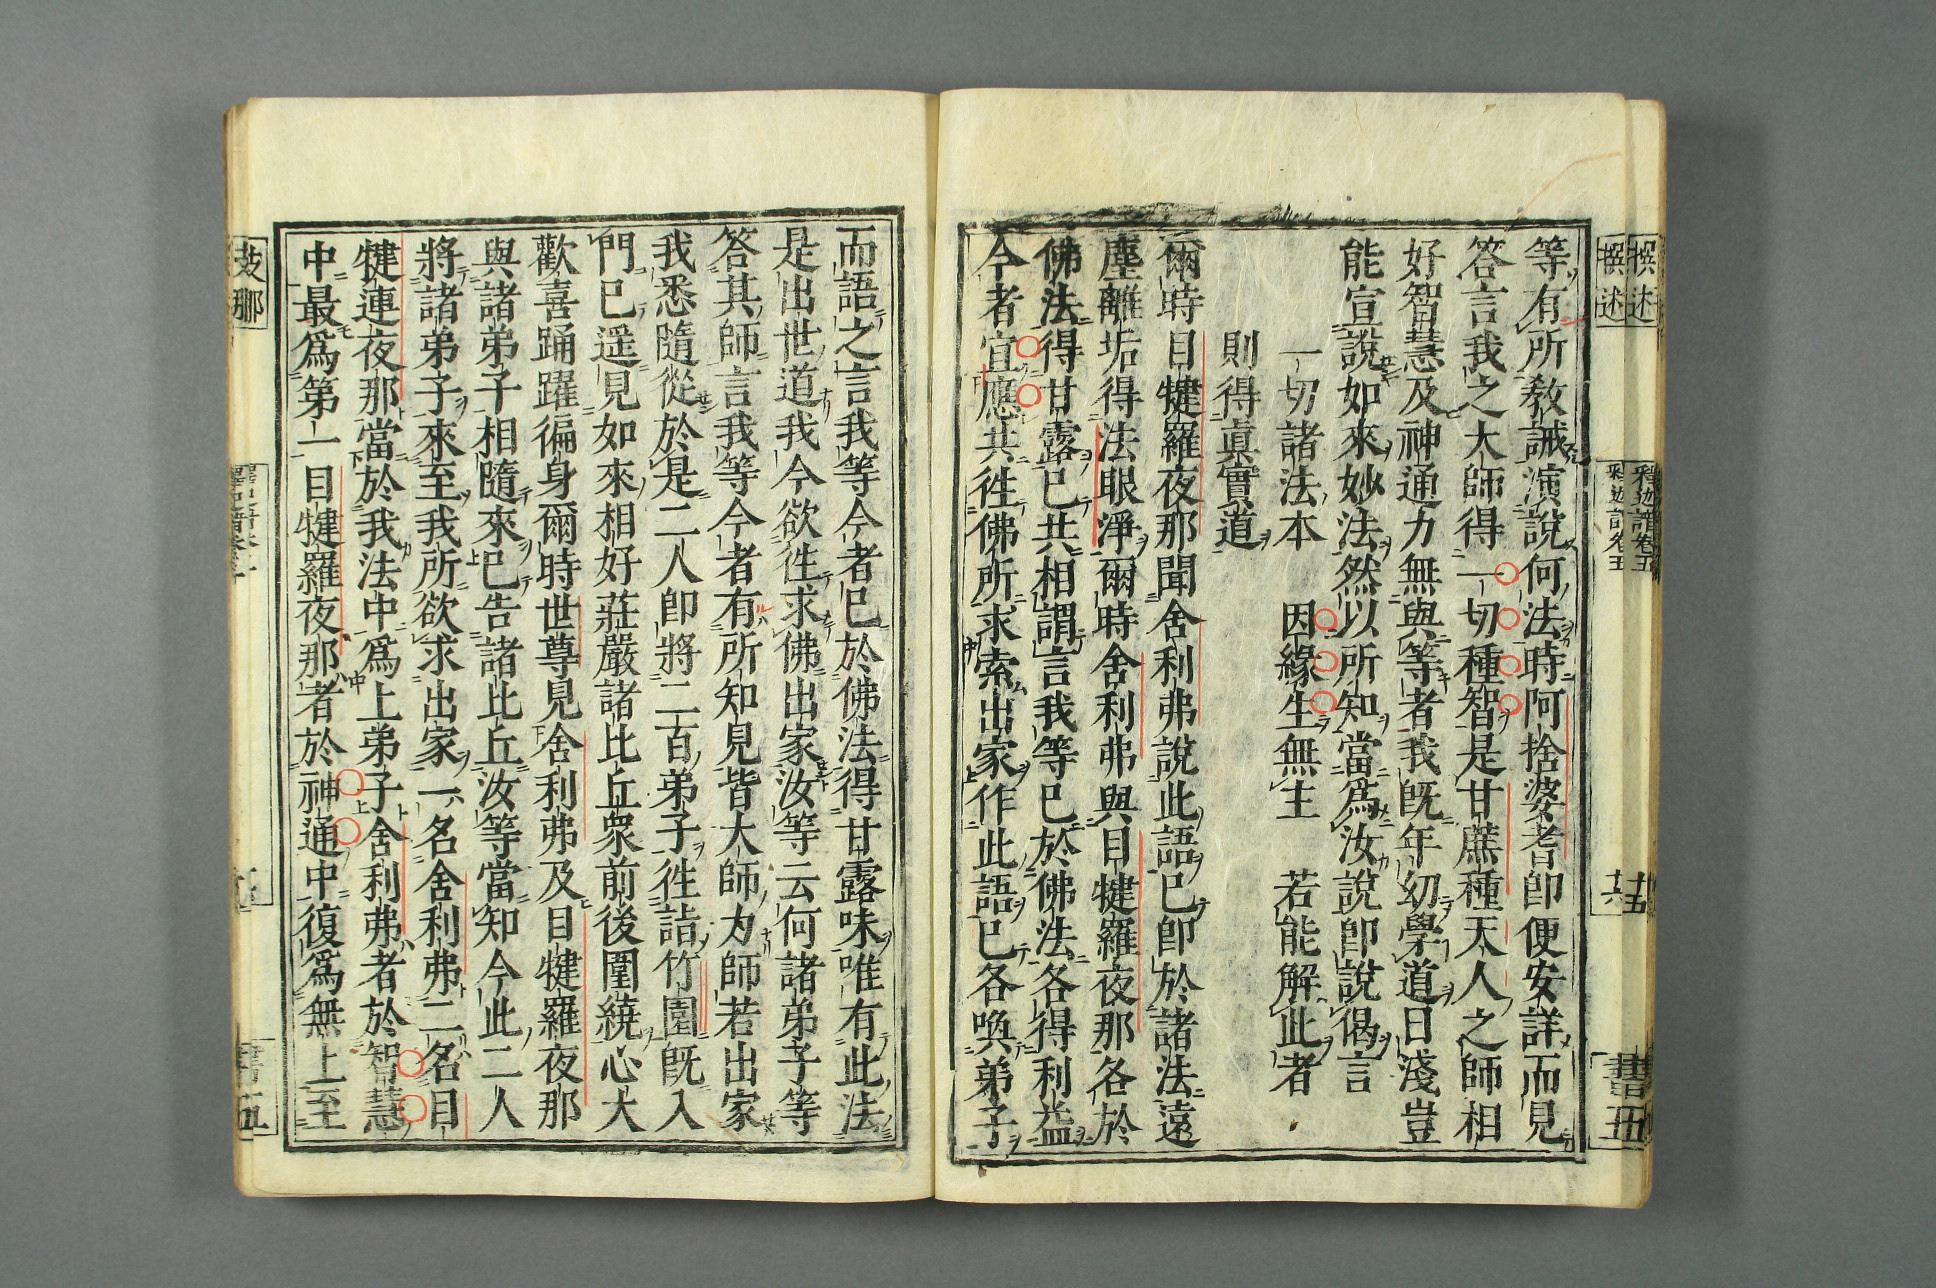 等有所教誡演說何法時阿捨婆耆即便安詳而見
答言我之大師得一切種智是甘蔗種天人之師相
好智慧及神通力無與等者我既年幼學道日淺豈
能宣說如來妙法然以所知當為汝說即說偈言
一切諸法本 因緣生無主 若能解此者
則得眞實道
爾時目犍羅夜那聞舍利弗說此語已即於諸法遠
塵離垢得法眼淨爾時舍利弗與目犍羅夜那各於
佛法得甘露已共相謂言我等已於佛法各得利益
今者宜應共徃佛所求索出家作此語已各喚弟子
而語之言我等今者已於佛法得甘露味唯有此法
是出世道我今欲徃求佛出家汝等云何諸弟子等
答其師言我等今者有所知見皆大師力師若出家
我悉隨從於是二人即將二百弟子徃詣竹園既入
門已遥見如來相好莊嚴諸比丘衆前後圍繞心大
歡喜踊躍徧身爾時世尊見舍利弗及目犍羅夜那
與諸弟子相隨來已告諸比丘汝等當知今此二人
將諸弟子來至我所欲求出家一名舍利弗二名目
犍連夜那當於我法中爲上弟子舍利弗者於智慧
中最爲第一目犍羅夜那者於神通中復爲無上至
撰述
釋迦譜卷五
十五
書五
撰述
釋迦譜卷五
十六
支那
書五